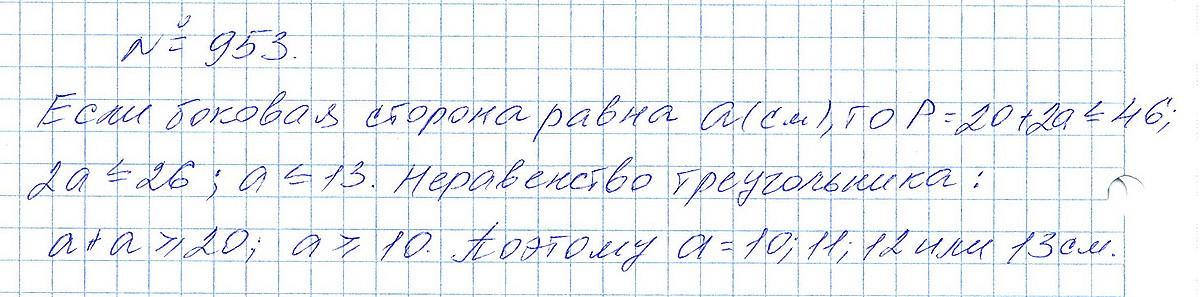 № 953.
Если боковая сторона равна a(см), то P=20+2a≤46;
2a≤26; a≤13. Неравенство треугольника:
a+a⩾20; a⩾10. Поэтому a=10; 11; 12 или 13 см.